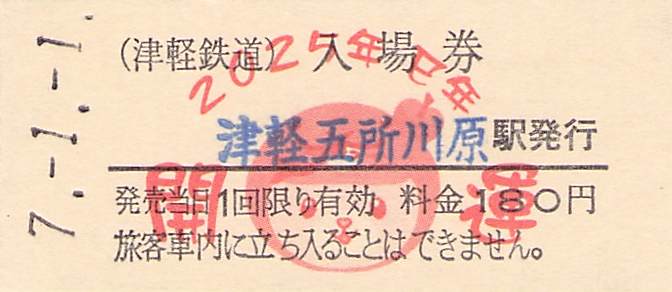 7.-1.-1.
(津軽鉄道) 入場券
2025年巳年
津軽五所川原駅発行
開運
発売当日1回限り有効 料金180円
旅客車内に立ち入ることはできません。